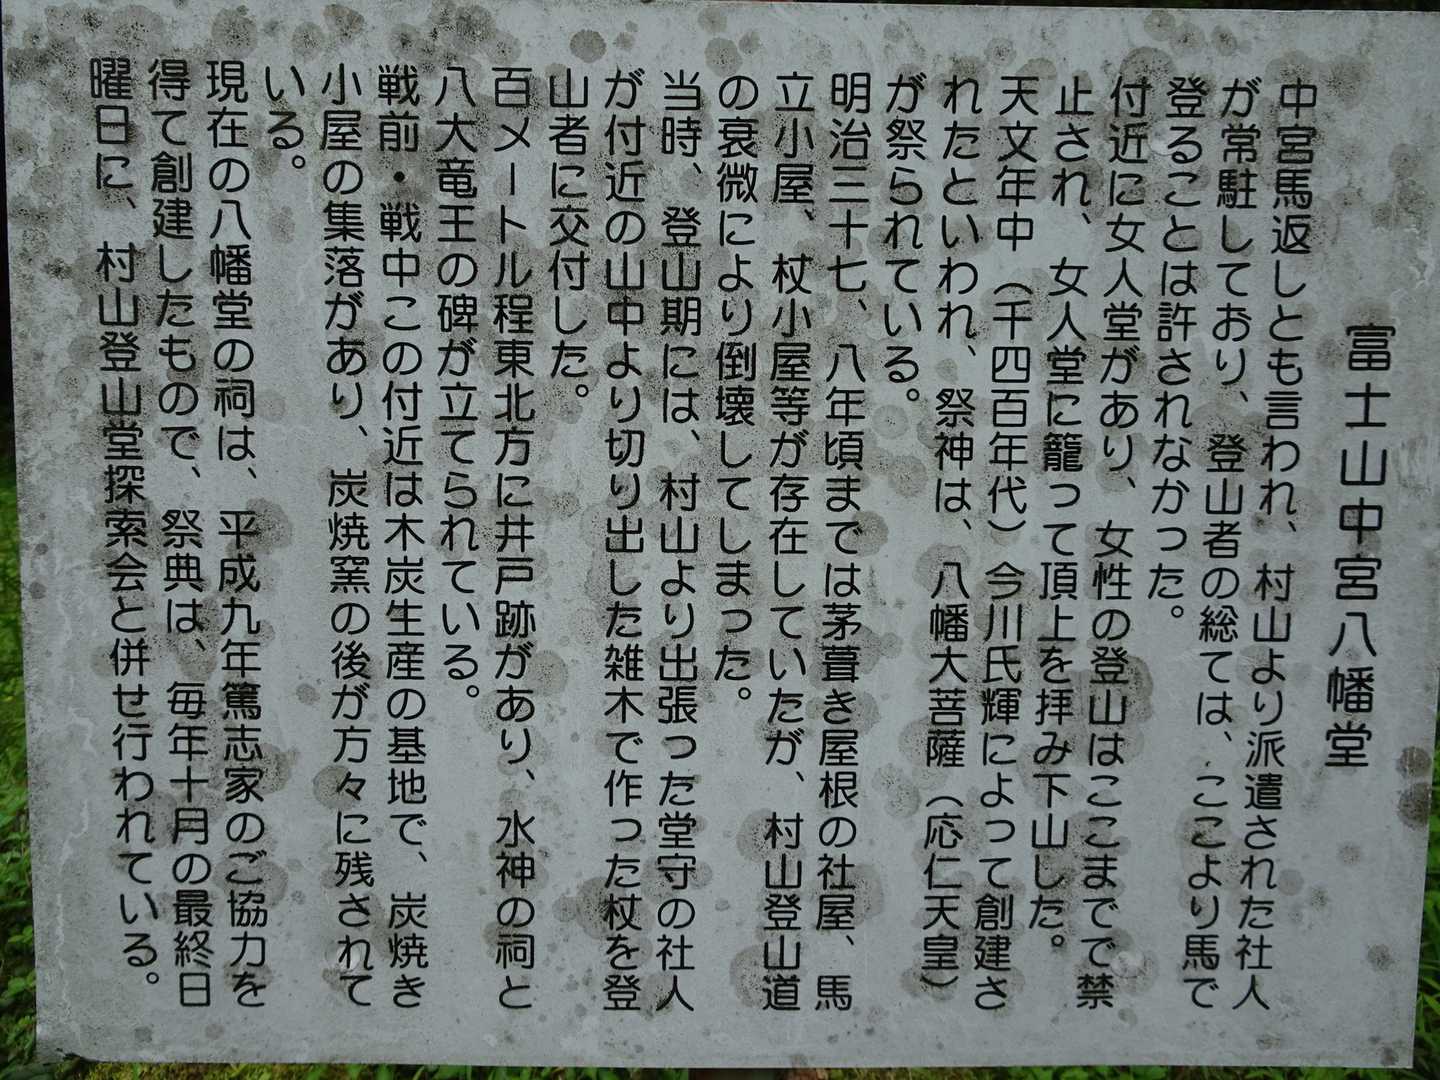 富士山中宮八幡堂
中宮馬返しとも言われ、村山より派遣された社人
が常駐しており、登山者の総ては、ここより馬で
登ることは許されなかった。
付近に女人堂があり、女性の登山はここまでで禁
止され、女人堂に籠って頂上を拝み下山した。
天文年中（千四百年代）今川氏輝によって創建さ
れたといわれ、祭神は、八幡大菩薩（応仁天皇）
が祭られている。
明治三十七、八年頃までは茅葺き屋根の社屋、馬
立小屋、杖小屋等が存在していたが、村山登山道
の衰微により倒壊してしまった。
当時、登山期には、村山より出張った堂守の社人
が付近の山中より切り出した雑木で作った杖を登
山者に交付した。
百メートル程東北方に井戸跡があり、水神の祠と
八大竜王の碑が立てられている。
戦前・戦中この付近は木炭生産の基地で、炭焼き
小屋の集落があり、炭焼窯の後が方々に残されて
いる。
現在の八幡堂の祠は、平成九年篤志家のご協力を
得て創建したもので、祭典は、毎年十月の最終日
曜日に、村山登山堂探索会と併せ行われている。